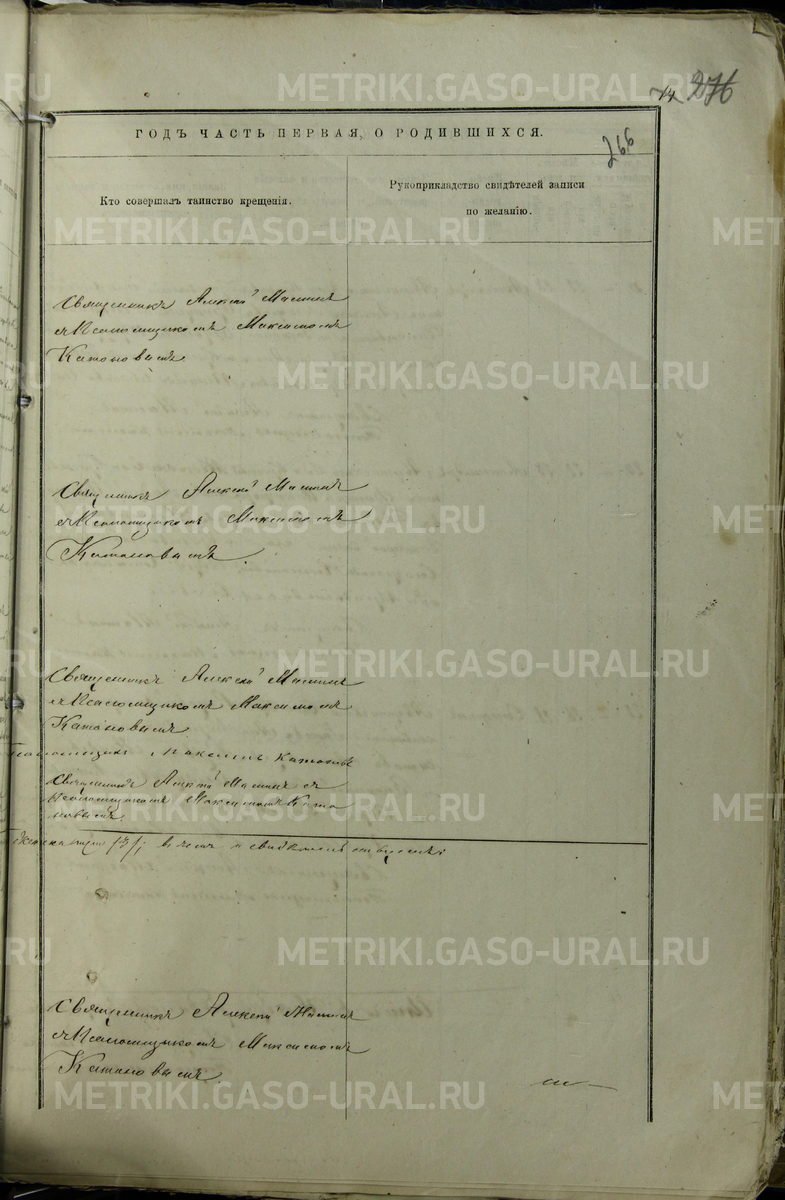 276
266
ГОДЪ ЧАСТЬ ПЕРВАЯ, О РОДИВШИХСЯ.
Кто совершалъ таинство крещенія.
Рукоприкладство свидѣтелей записи
по желанію.
Священникъ Алексѣй
съ Псаломщикомъ Максимомъ
Катановымъ.
Священникъ Алексѣй
съ Псаломщикомъ Максимомъ
Катановымъ.
Священникъ Алексѣй
съ Псаломщикомъ Максимомъ
Катановымъ
Псаломщикъ Максимъ Катановъ
Священникъ Алексѣй съ
Псаломщикомъ Максимомъ Ката
новымъ
въ чемъ и свидѣтельствуемъ:
Священникъ Алексѣй
съ Псаломщикомъ Максимомъ
Катановымъ.
METRIKI.GASO-URAL.RU